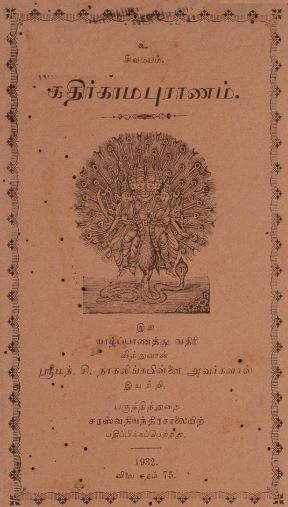 உ
சிவமயம்.
கதிர்காமபுராணம்.
இஃ
யாழ்ப்பாணத்து வதிரி
வித்துவான்
ஸ்ரீமத். சி. நாகலிங்கபிள்ளை அவர்களால்
இயற்றி,
பருத்தித்துறை
சரஸ்வதியந்திரசாலையிற்
பதிப்பிக்கப்பெற்றது.
1932.
விலை சதம் 75.